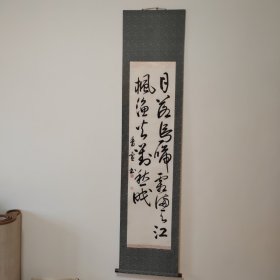 月落烏啼霜滿天江
楓漁火對愁眠